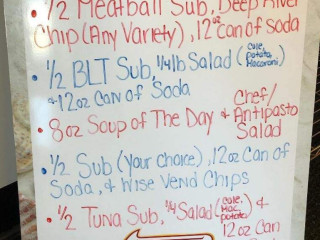 • 1/2 Meatball Sub, Deep River
Chip (Any Variety), 12oz can of Soda
• 1/2 BLT Sub, 1/4 lb Salad (Cole, Potato, Macaroni)
& 12oz Can of Soda
• 8oz Soup of The Day & Chef/
Antipasto
Salad
• 1/2 Sub (your choice), 12oz Can of
Soda, & Wise Vend Chips
• 1/2 Tuna Sub, 1/4 Salad (Cole, Mac, Potato) &
12oz Can